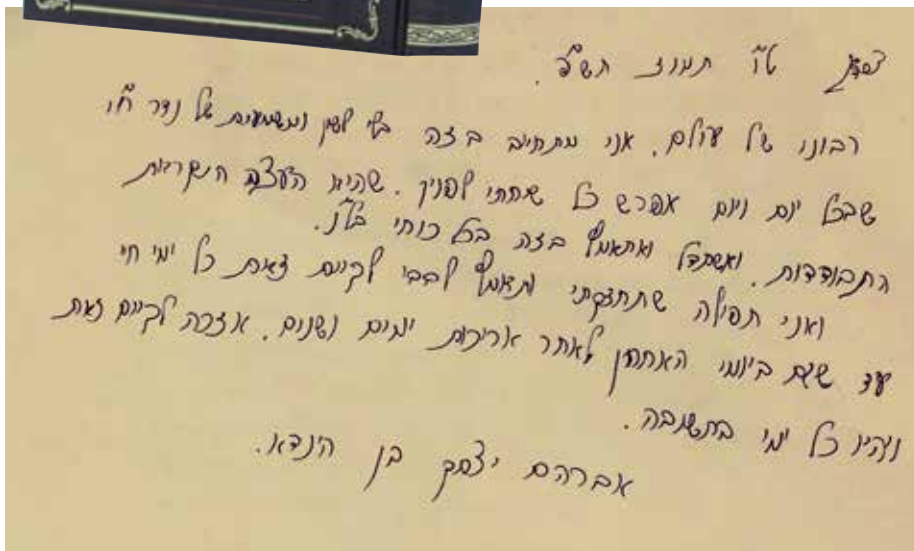 צפת ט"ו תמוז תש"פ.
רבונו של עולם. אני מתחייב בזה בלי לשון ומשמעות של נדר ח"ו
שבכל יום ויום אפרש כל שיחתי לפניך. שהיא העצה הנקראת
התבודדות. ואשתדל ואתאמץ בזה בכל כוחי בל"נ.
ואני תפילה שתחזקני ותאמץ לבבי לקיים זאת כל ימי חיי
עד שגם ביומי האחרון לאחר אריכות ימים ושנים. אזכה לקיים זאת
ויהיו כל ימי בתשובה.
אברהם יצחק בן הינדא.